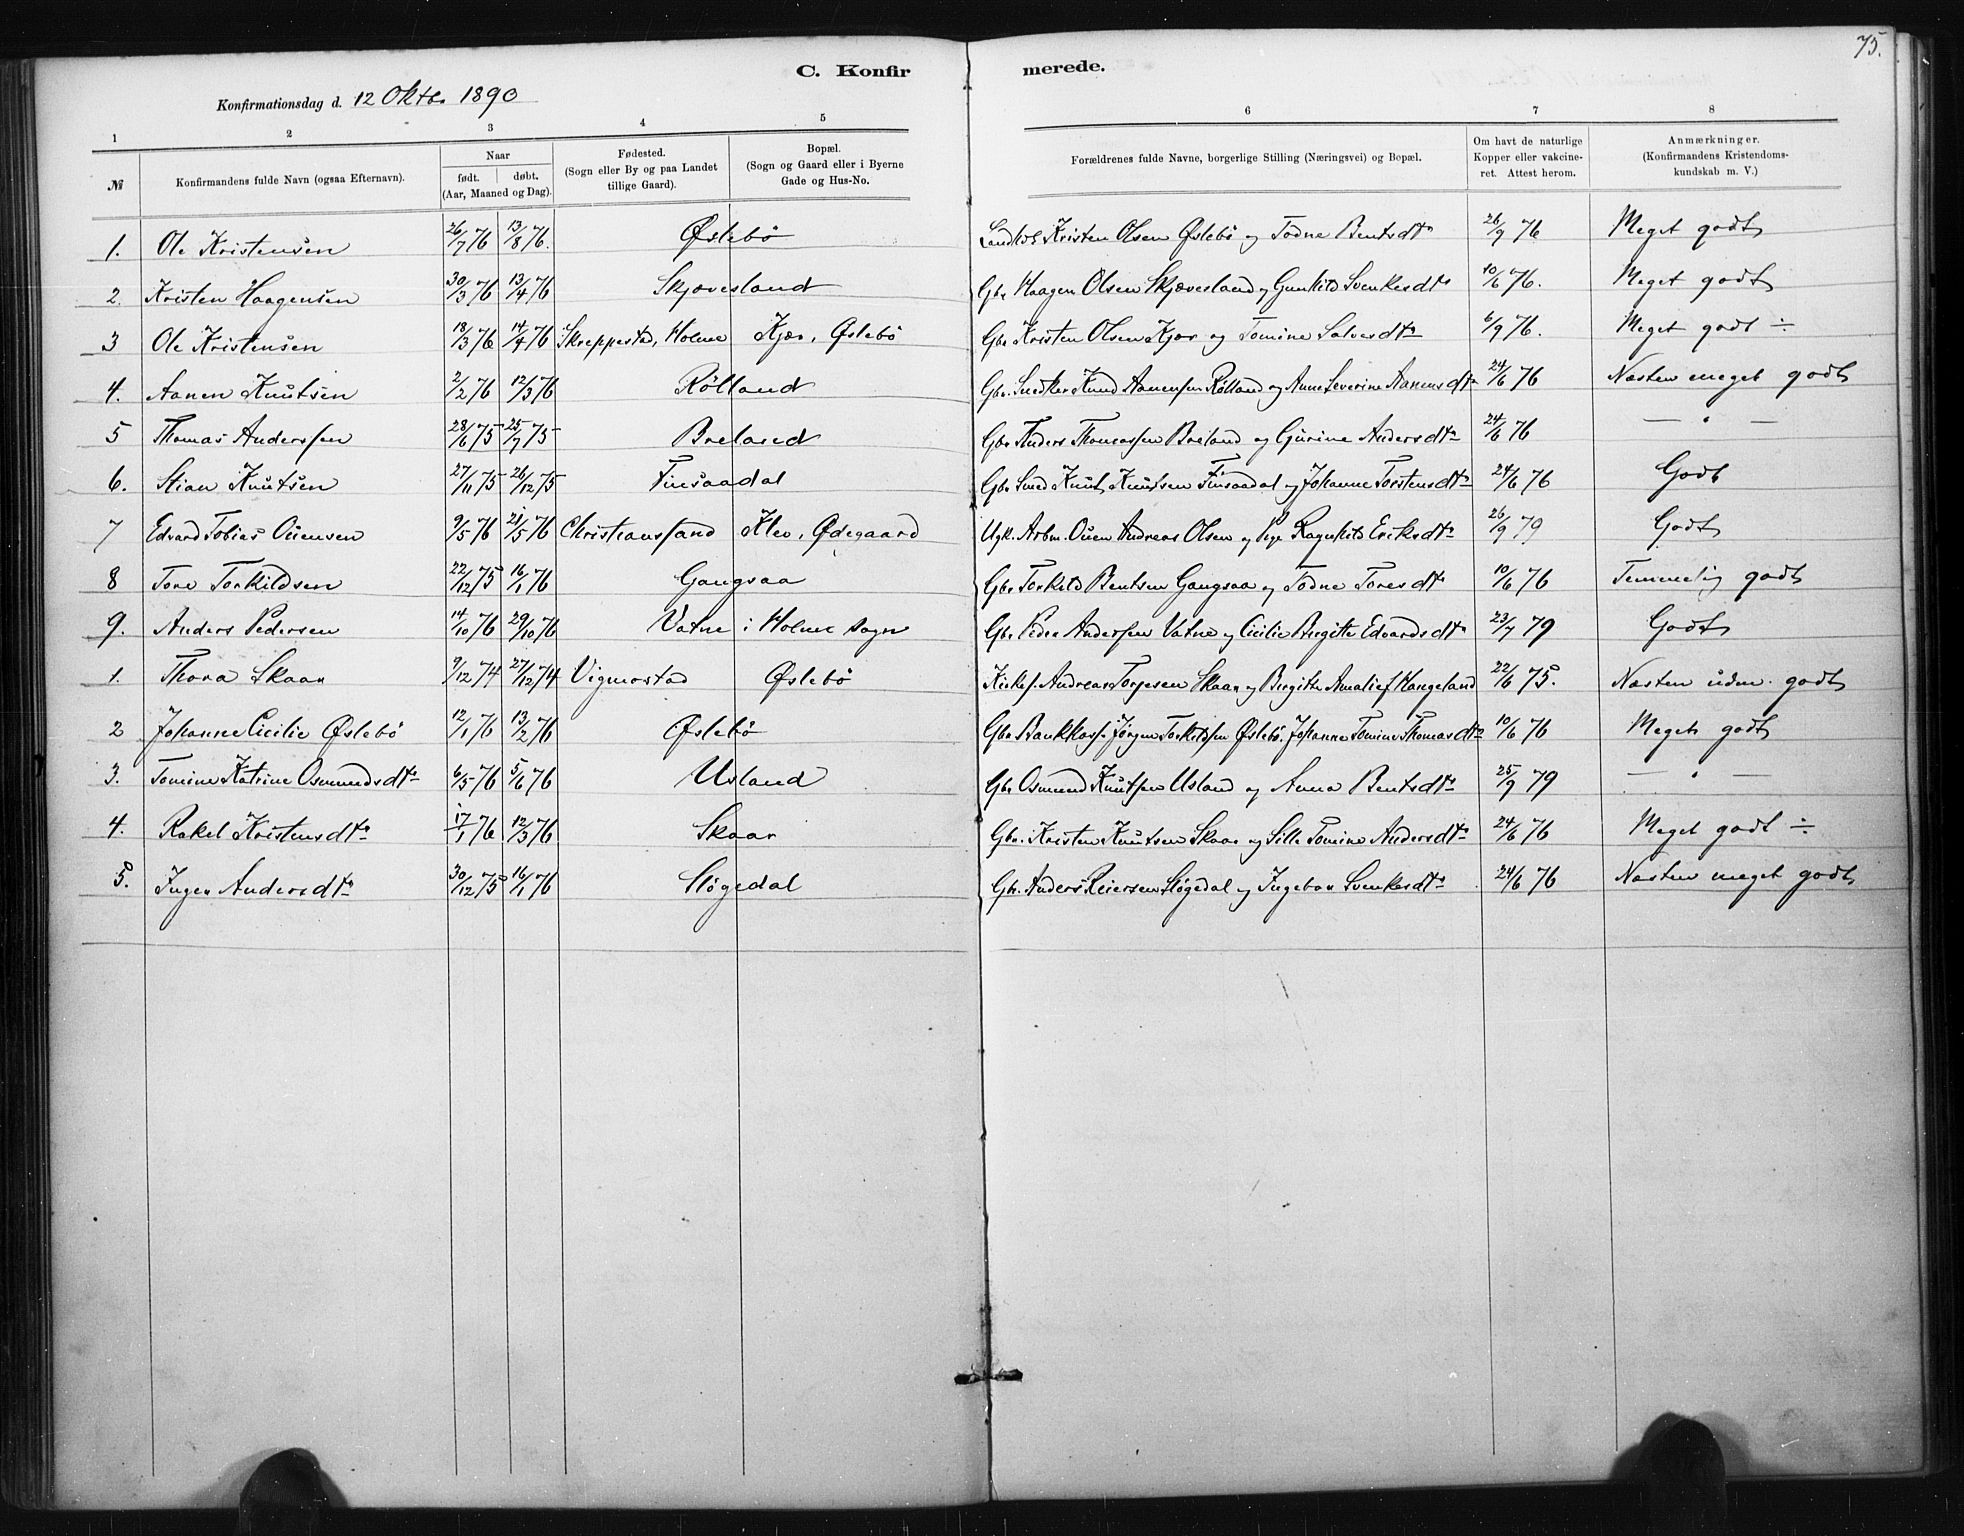 75.
C. Konfirmerede.
Konfirmationsdag d. 12 Oktb. 1890
1 2 3 4 5 6 7 8
№ Konfirmandens fulde Navn (ogsaa Efternavn). Naar født. døbt. (Aar, Maaned og Dag). Fødested. (Sogn eller By og paa Landet tillige Gaard). Bopæl. (Sogn og Gaard eller i Byerne Gade og Hus-No. Forældrenes fulde Navne, borgerlige Stilling (Næringsvei) og Bopæl. Om havt de naturlige Kopper eller vakcineret. Attest herom. Anmærkninger. (Konfirmandens Kristendomskundskab m. V.)
1. Ole Kristensen 26/7 76 13/8 76. Øslebö Kristen Olsen Øslebö og Todne Bentsdtr 26/9 76 Meget godt
2. Kristen Haagensen 30/3 76 13/4 76 Skjævesland Gbr Haagen Olsen Skjævesland og Gunhild Svenkesdtr 10/6 76. Meget godt
3 Ole Kristensen 18/3 76 14/4 76 Skreppestad, Holme Kjær, Øslebö Gbr Kristen Olsen Kjær og Tomine Salvesdtr 6/9 76. Meget godt ÷
4. Aanen Knutsen 2/2 76 12/3 76 Rølland Gbr. Snedker Knud Aanensen Rølland og Anne Severine Aanensdtr 24/6 76 Næsten meget godt
5 Thomas Anderssen 28/6 75 25/7 75 Breland Gbr Anders Thomassen Breland og Gurine Andersdtr 24/6 76 — " —
6. Stian Knutsen 27/11 75 26/12 75 Finsaadal Gbr Smed Knut Knutsen Finsaadal og Johanne Torstensdtr 24/6 76 Godt
7 Edvard Tobias Ouensen 9/5 76 21/5 76 Christianssand Klev, Ødegaard Ugk. Arbm. Ouen Andreas Olsen og Pige Ragnhild Eriksdtr 26/9 79 Godt
8 Tore Torkildsen 22/12 75 16/1 76 Gangsaa Gbr Torkild Bentsen Gangsaa og Todne Toresdtr 10/6 76 Temmelig godt
9. Anders Pedersen 14/10 76 29/10 76 Vatne i Holme sogn Gbr Peder Andersen Vatne og Cicilie Birgitte Edvardsdtr 23/7 79 Godt
1. Thora Skaar 9/12 74 27/12 74 Vigmostad Øslebö Kirkes. Andreas Torjesen Skaar og Birgitte Amalie f Haugeland 22/6 75. Næsten udm. godt
2 Johanne Cicilie Øslebö 12/1 76 13/2 76 Øslebö Gbr Bankkass. Jørgen Torkildsen Øslebö. Johanne Tomine Thomasdtr 10/6 76 Meget godt
3. Tomine Katrine Osmundsdtr 6/5 76 5/6 76 Usland Gbr Osmund Knutsen Usland og Anna Bentsdtr 25/9 79 — " —
4. Rakel Kristensdtr 17/1 76 12/3 76 Skaar Gbr. Kristen Knutsen Skaar og Sille Tomine Andersdtr 24/6 76 Meget godt ÷
5. Inger Andersdtr 30/12 75 16/1 76 Støgedal Gbr. Anders Reiersen Støgedal og Ingebor Svenkesdtr 24/6 76 Næsten meget godt